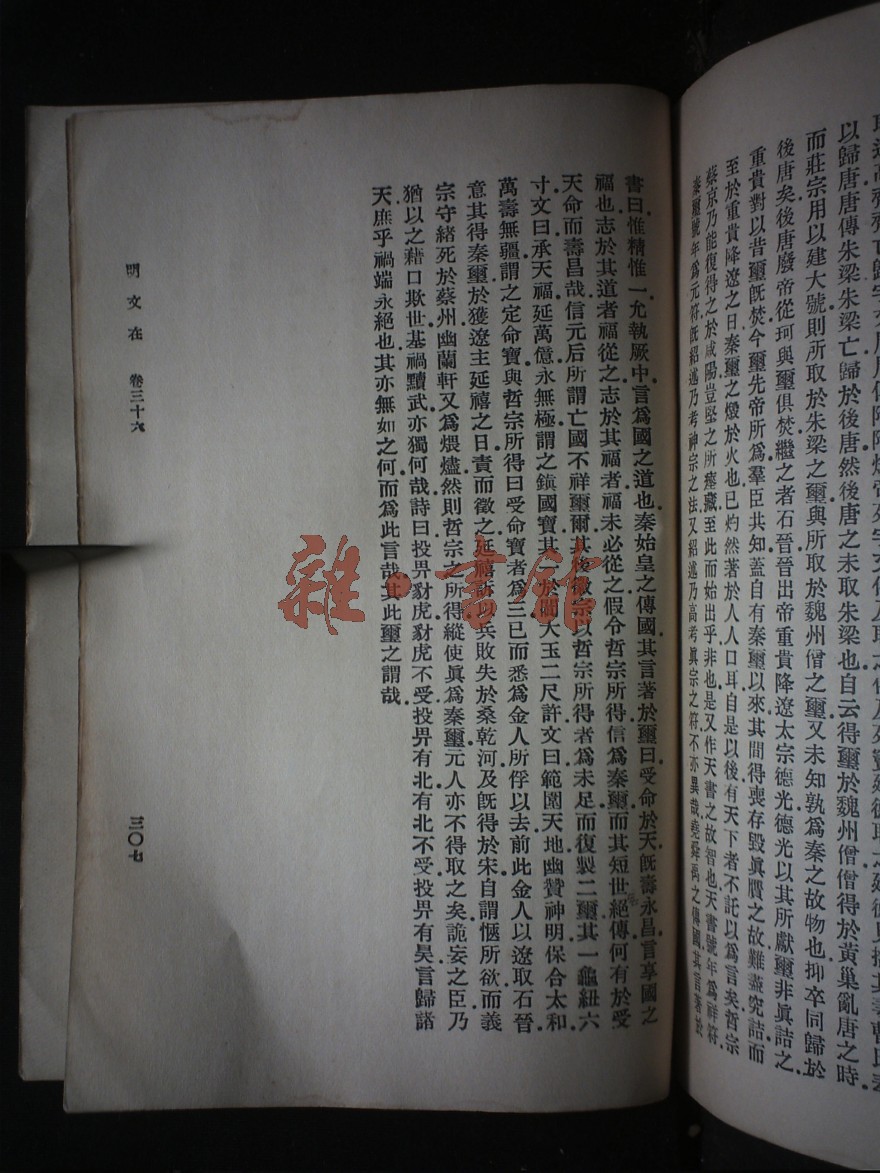 以歸唐唐傳朱梁朱梁亡歸於後唐然後唐之未取朱梁也自云得璽於魏州僧僧得於黃巢亂唐之時
而莊宗用以建大號則所取於朱梁之璽與所取於魏州僧之璽又未知孰爲秦之故物也抑卒同歸於
後唐矣後唐廢帝從珂與璽俱焚繼之者石晉晉出帝重貴降遼太宗德光德光以其所獻璽非眞詰之
重貴對以昔璽旣焚今璽先帝所爲羣臣共知蓋自有秦璽以來其間得喪存毀眞贋之故難盡究詰而
至於重貴降遼之日秦璽之燬於火也已灼然著於人人口耳自是以後有天下者不託以爲言矣哲宗
蔡京乃能復得之於咸陽豈堅之所瘞藏至此而始出乎非也是又作天書之故智也天書號年爲祥符
秦璽號年爲元符旣紹述乃考神宗之法又紹述乃高考眞宗之符不亦異哉堯舜禹之傳國其言著於
書曰惟精惟一允執厥中言爲國之道也秦始皇之傳國其言著於璽曰受命於天旣壽永昌言享國之
福也志於其道者福從之志於其福者福未必從之假令哲宗所得信爲秦璽而其短世絕傳何有於受
天命而壽昌哉信元后所謂亡國不祥璽爾其後徽宗以哲宗所得者爲未足而復製二璽其一龜紐六
寸文曰承天福延萬億永無極謂之鎭國寶其一於闐大玉二尺許文曰範圍天地幽贊神明保合太和
萬壽無疆謂之定命寶與哲宗所得曰受命寶者爲三已而悉爲金人所俘以去前此金人以遼取石晉
意其得秦璽於獲遼主延禧之日責而徵之延禧訴以兵敗失於桑乾河及旣得於宋自謂愜所欲而義
宗守緒死於蔡州幽蘭軒又爲煨燼然則哲宗之所得縱使眞爲秦璽元人亦不得取之矣詭妄之臣乃
猶以之藉口欺世基禍黷武亦獨何哉詩曰投畀豺虎豺虎不受投畀有北有北不受投畀有昊言歸諸
天庶乎禍端永絕也其亦無如之何而爲此言哉其此璽之謂哉
明文在 卷三十六
三〇七
雜·書館